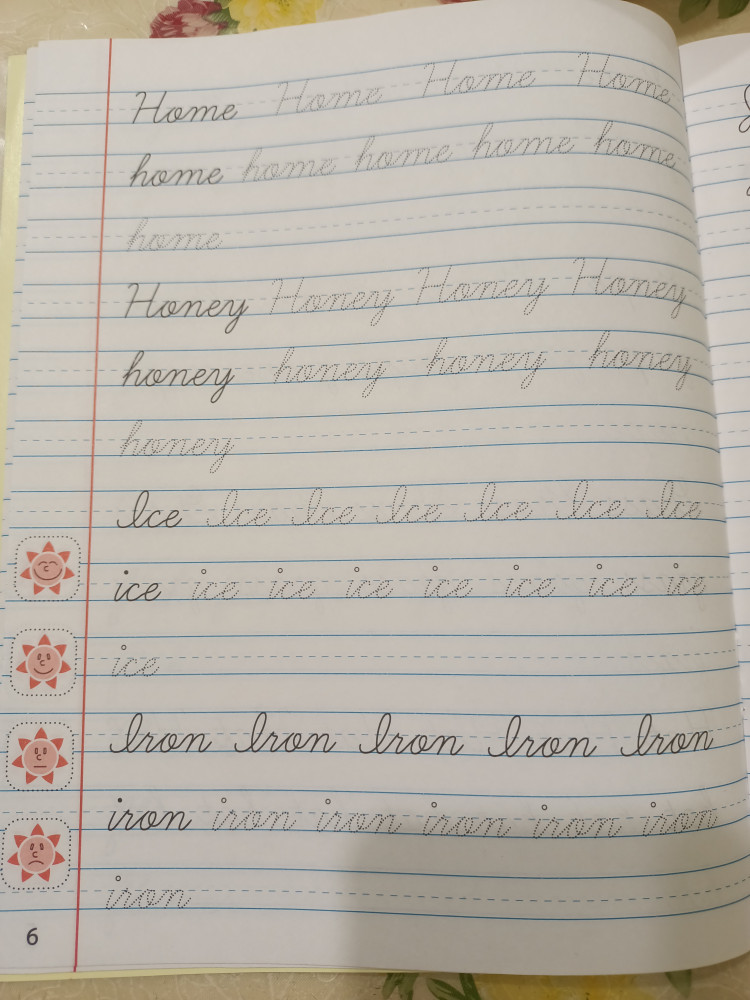 Home Home Home Home
home home home home home
home
Honey Honey Honey Honey
honey honey honey honey
honey
Ice Ice Ice Ice Ice Ice Ice
ice ice ice ice ice ice ice ice
ice
Iron Iron Iron Iron Iron
iron iron iron iron iron iron
iron
6